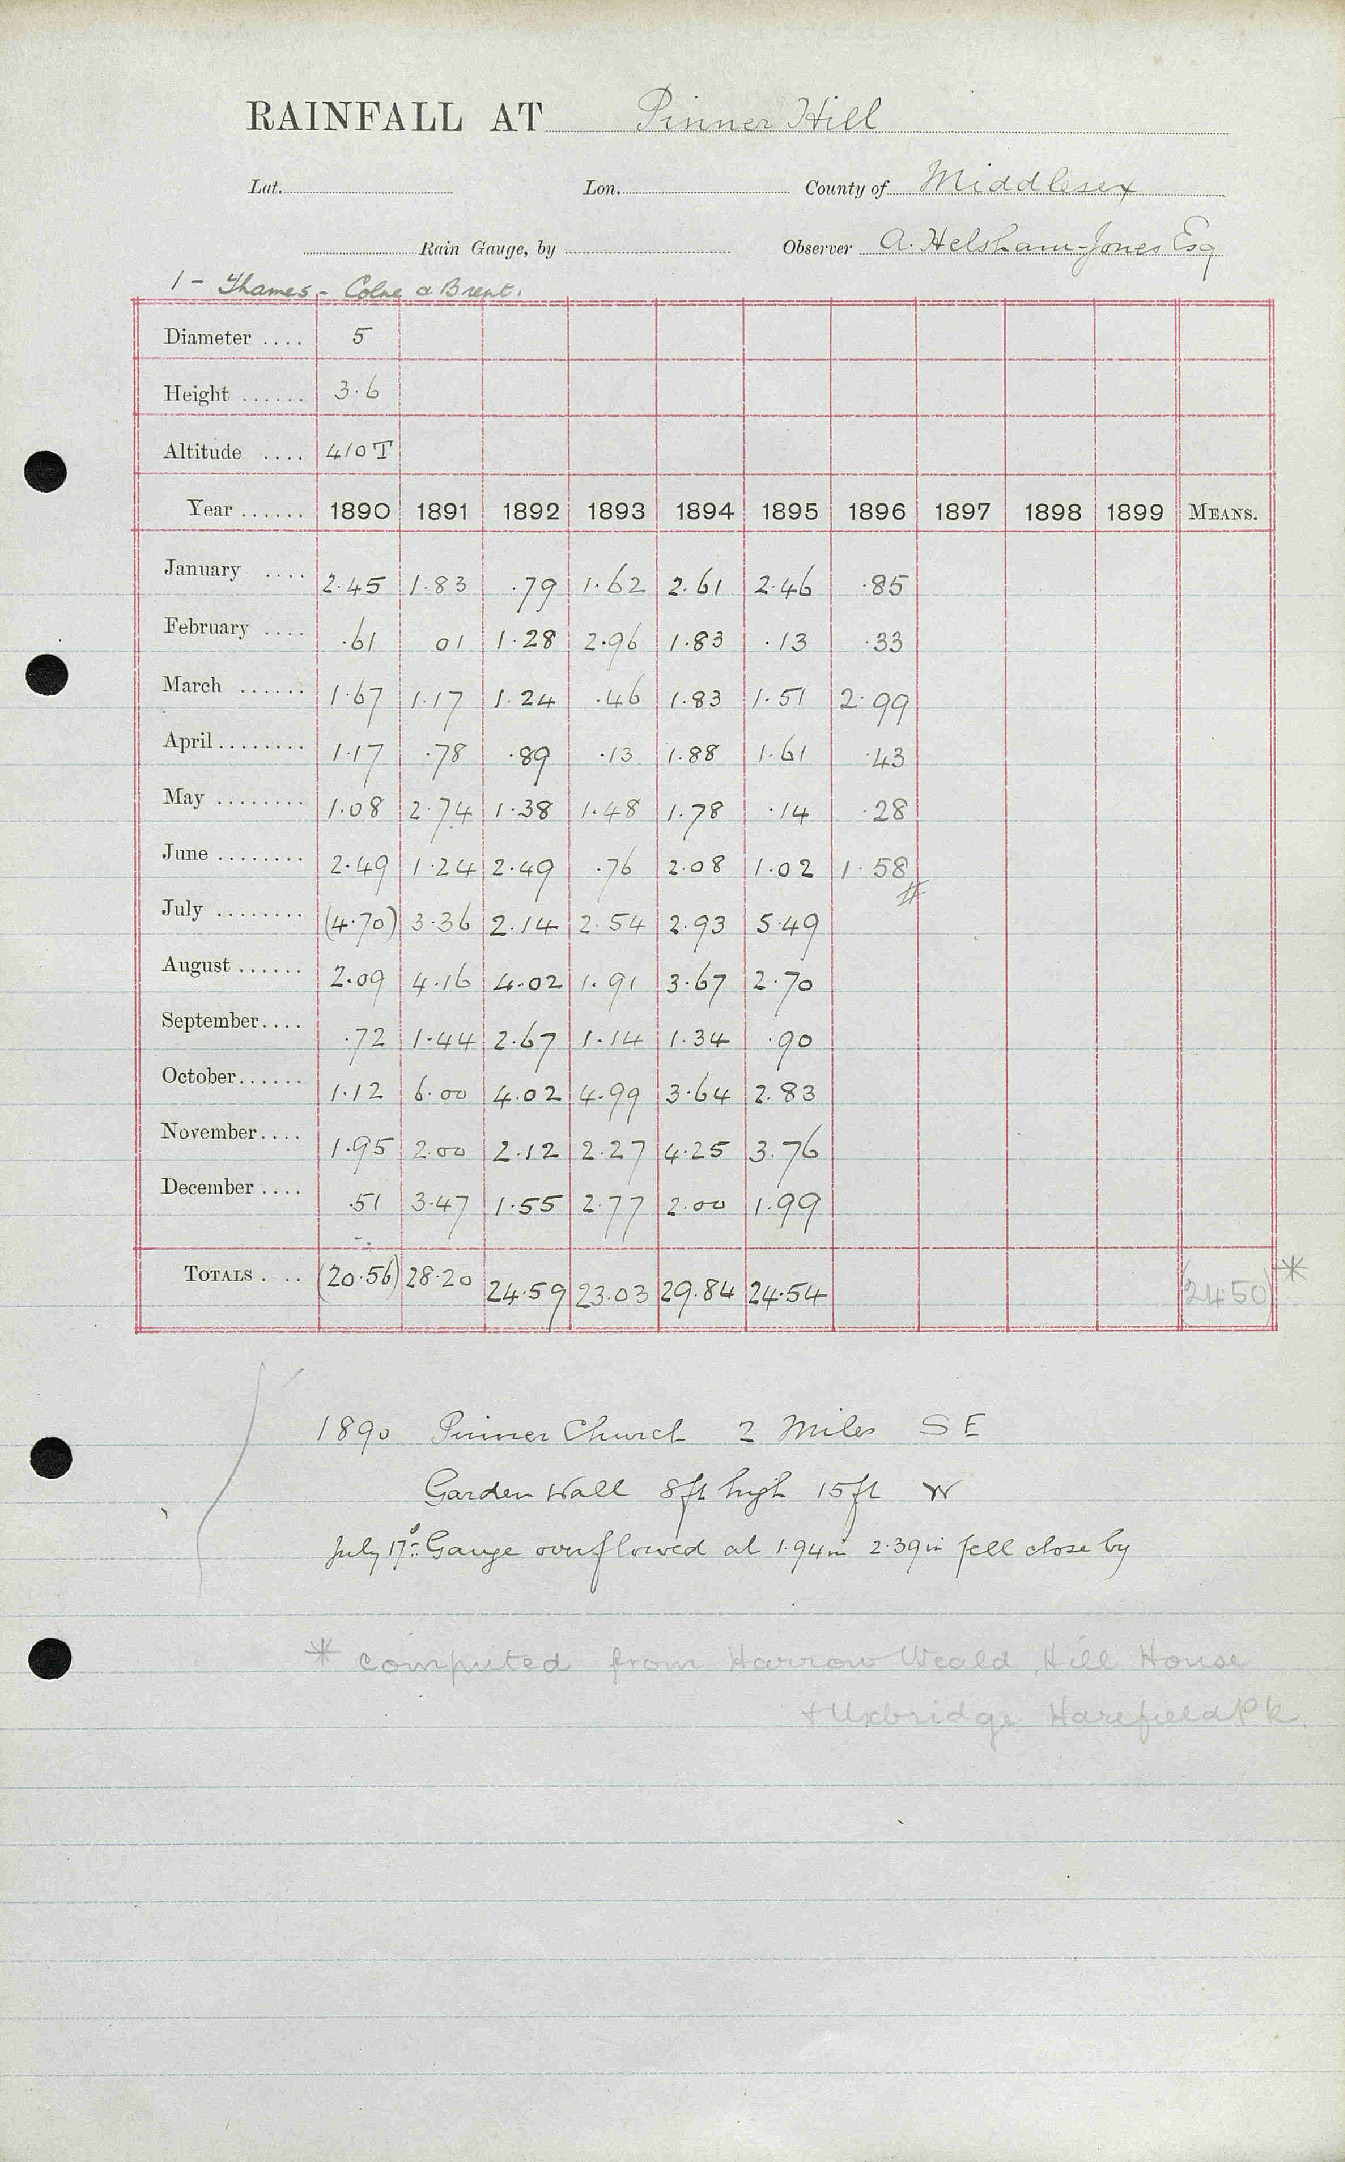 RAINFALL AT Pinner Hill
Lat. Lon. County of Middlesex
Rain Gauge, by Observer A. Helsham-Jones Esq
1 - Thames - Colne & Brent.
Diameter .... 5
Height ...... 3.6
Altitude .... 410 T
Year ...... 1890 1891 1892 1893 1894 1895 1896 1897 1898 1899 MEANS.
January .... 2.45 1.83 .79 1.62 2.61 2.46 .85
February .... .61 01 1.28 2.96 1.83 .13 .33
March ...... 1.67 1.17 1.24 .46 1.83 1.51 2.99
April ........ 1.17 .78 .89 .13 1.88 1.61 .43
May ........ 1.08 2.74 1.38 1.48 1.78 .14 .28
June ........ 2.49 1.24 2.49 .76 2.08 1.02 1.58
July ........ (4.70) 3.36 2.14 2.54 2.93 5.49
August ...... 2.09 4.16 4.02 1.91 3.67 2.70
September .... .72 1.44 2.67 1.14 1.34 .90
October ...... 1.12 6.00 4.02 4.99 3.64 2.83
November .... 1.95 2.00 2.12 2.27 4.25 3.76
December .... .51 3.47 1.55 2.77 2.00 1.99
TOTALS .... (20.56) 28.20 24.59 23.03 29.84 24.54 (24.50) *
1890 Pinner Church 2 Miles SE
Garden Wall 8ft high 15ft W
July 17th: Gauge overflowed at 1.94in 2.39in fell close by
* computed from Harrow Weald, Hill House
+ Uxbridge Harefield Pk.